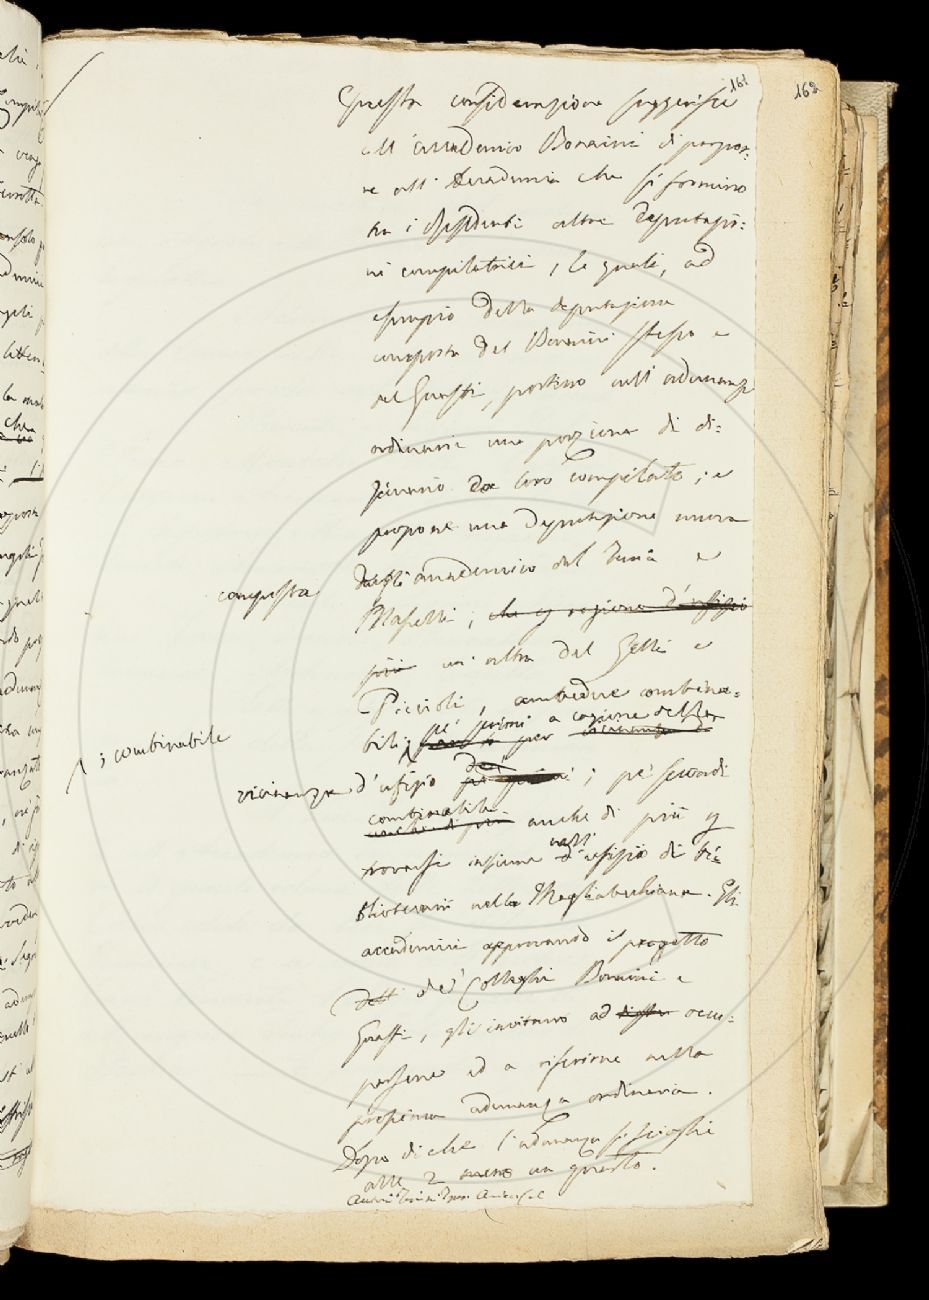 161
162
Questa considerazione suggerisce
all' Accademico Bonaini di propor=
re all' Accademia che si formino
tra i Residenti altre Deputazio=
ni compilatrici, le quali, ad
esempio della deputazione
composta del Bonaini stesso e
del Guasti, portino all' adunanze
ordinarie una porzione di di=
zionario da loro compilato; e
propone una Deputazione nuova
composta
dagli accademici del Furia e
Maselli; che per ragione d'uffizio
più un' altra dal Gelli e
Piccioli, ambedue combina=
bili pe' primi a cagione della
; combinabile
vicinanza d'ufizio ; pe' secondi
combinabile
anche di più per
trovarsi insieme nell' ufizio di bi=
bliotecarii nella Magliabechiana. Gli
accademici approvando il progetto
de' Colleghi Bonaini e
Guasti, gli invitano ad occu=
parsene ed a riferirne nella
prossima adunanza ordinaria.
Dopo di che l'adunanza si scioglie
alle 2 meno un quarto.